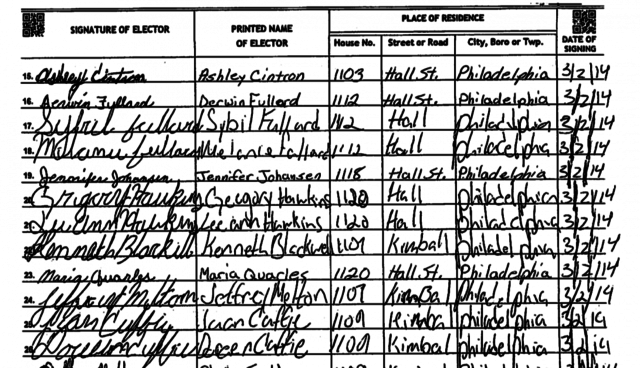 PLACE OF RESIDENCE
SIGNATURE OF ELECTOR PRINTED NAME OF ELECTOR House No. Street or Road City, Boro or Twp. DATE OF SIGNING
15. Ashley Cintron Ashley Cintron 1103 Hall St. Philadelphia 3/2/14
16. Derwin Fullard Derwin Fullard 1112 Hall St. Philadelphia 3/2/14
17. Sybil Fullard Sybil Fullard 1112 Hall philadelphia 3/2/14
18. Melanie Fullard Melanie Fullard 1112 Hall philadelpha 3/2/14
19. Jennifer Johansen Jennifer Johansen 1118 Hall St. Philadelphia 3/2/14
20. Gregory Hawkins Gregory Hawkins 1120 Hall philadelphia 3/2/14
21. Leeann Hawkins Leeann Hawkins 1120 Hall philadelphia 3/2/14
Kenneth Kenneth 1109 Kimball philadelphia 3/2/14
23. Maria Quarles Maria Quarles 1120 Hall St. Philadelphia 3/2/14
24. Melton Jeffrey Melton 1107 Kimball philadelphia 3/2/14
25. 1109 Kimbal philadelphia 3/2/14
26. Doreen 1109 Kimbal philadelphia 3/2/14